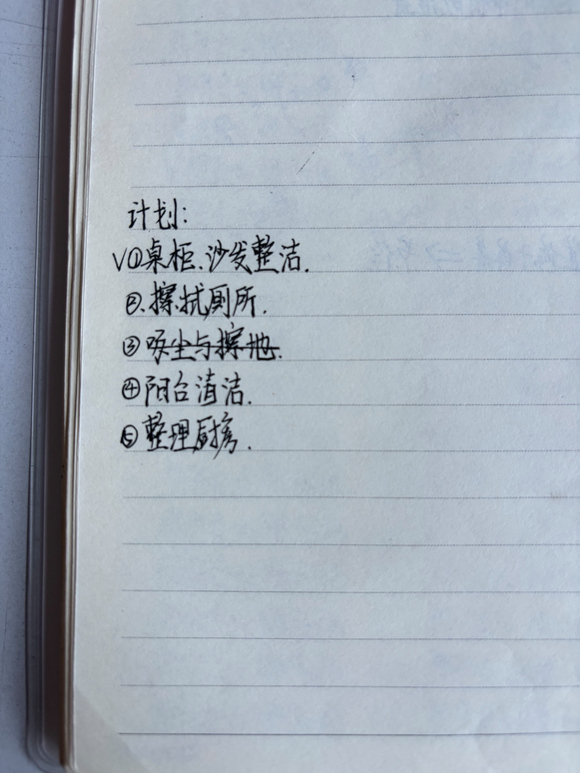 计划:
V①桌柜.沙发整洁.
②.擦拭厕所.
③吸尘与擦地.
④阳台清洁.
⑤整理厨房.